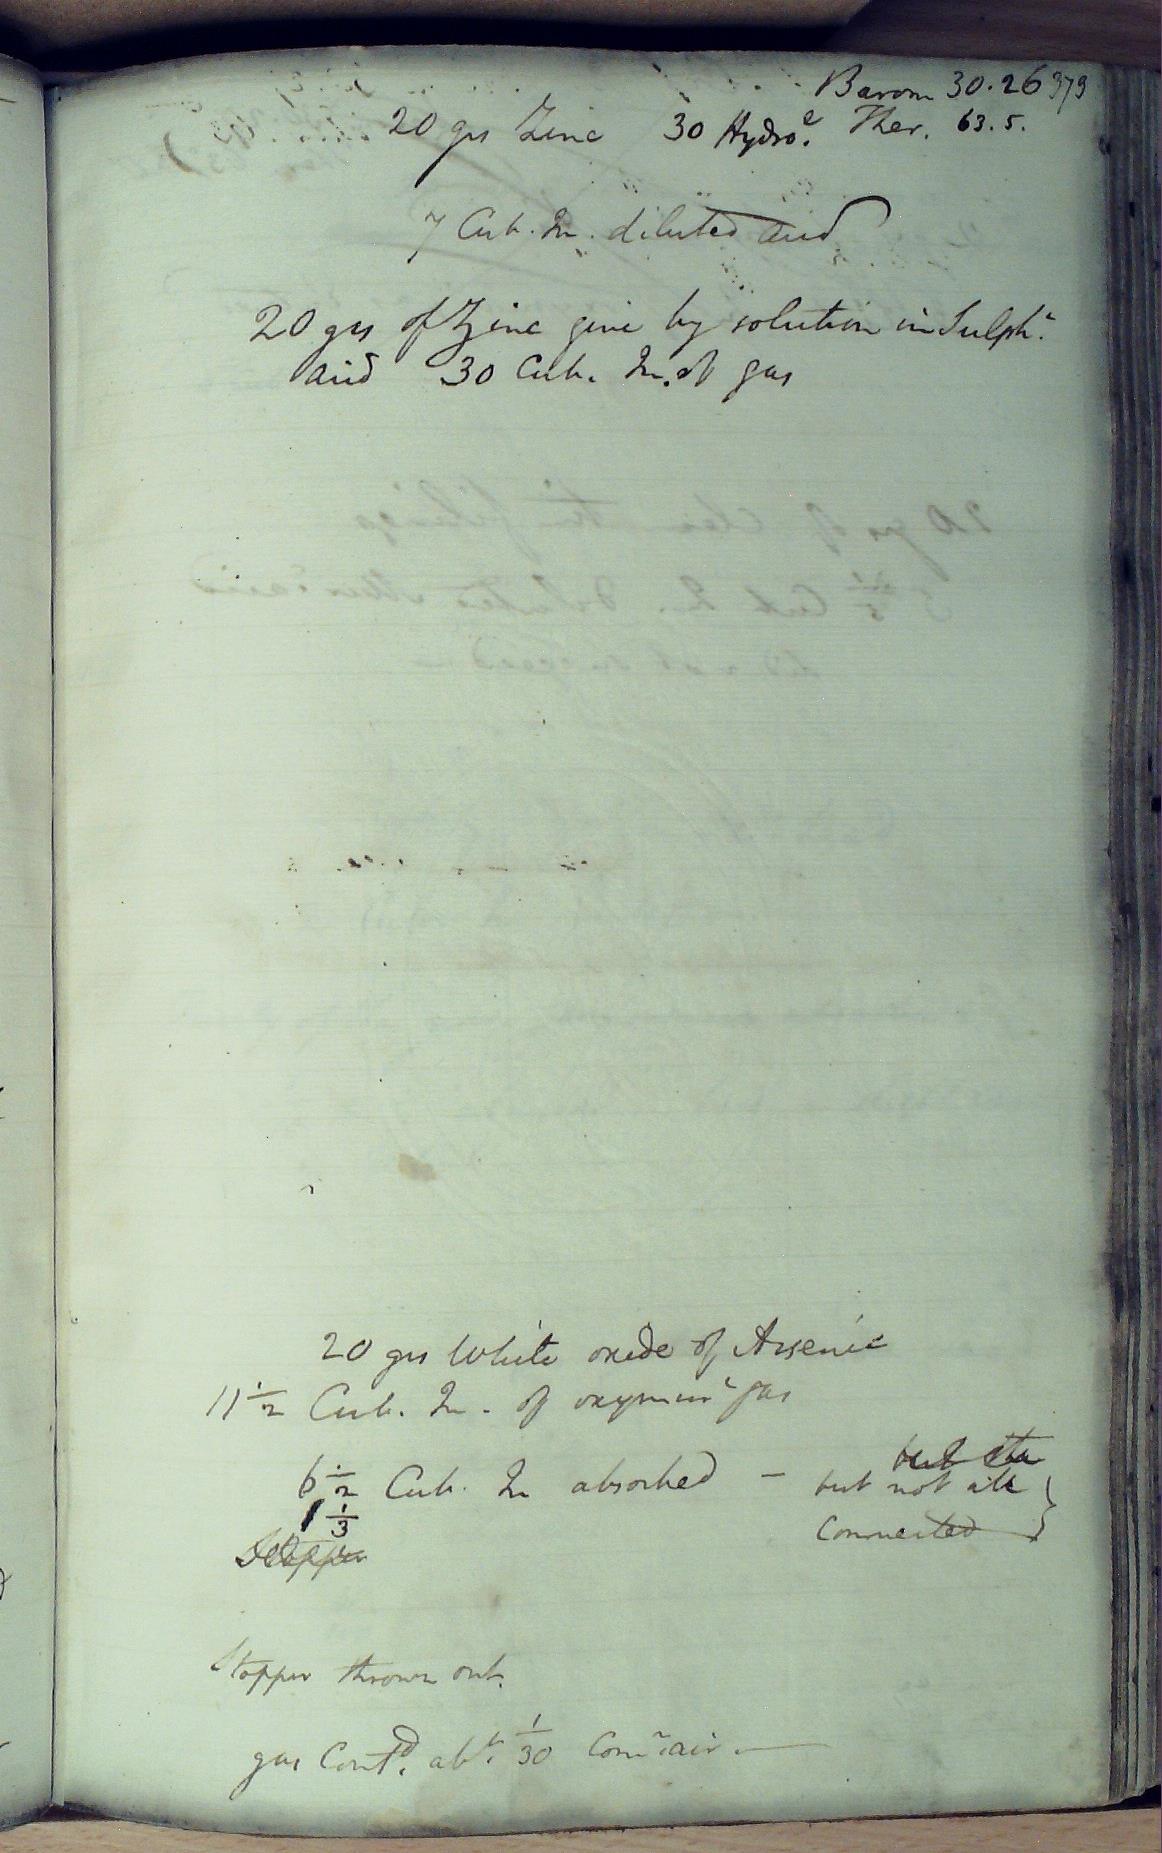 Barom 30.26 373
20 grs Zinc 30 Hydro.e Ther. 63.5.
7 Cub. In. diluted acid
20 grs of Zinc give by solution in Sulph.c
acid 30 Cub. In. of gas
20 grs White oxide of Arsenic
11 1/2 Cub. In. of oxymurc gas
6 1/2 Cub. In absorbed — but
but not all
1 1/3
Converted
Stopper
Stopper thrown out.
gas Contd. abt. 1/30 Comn air.—